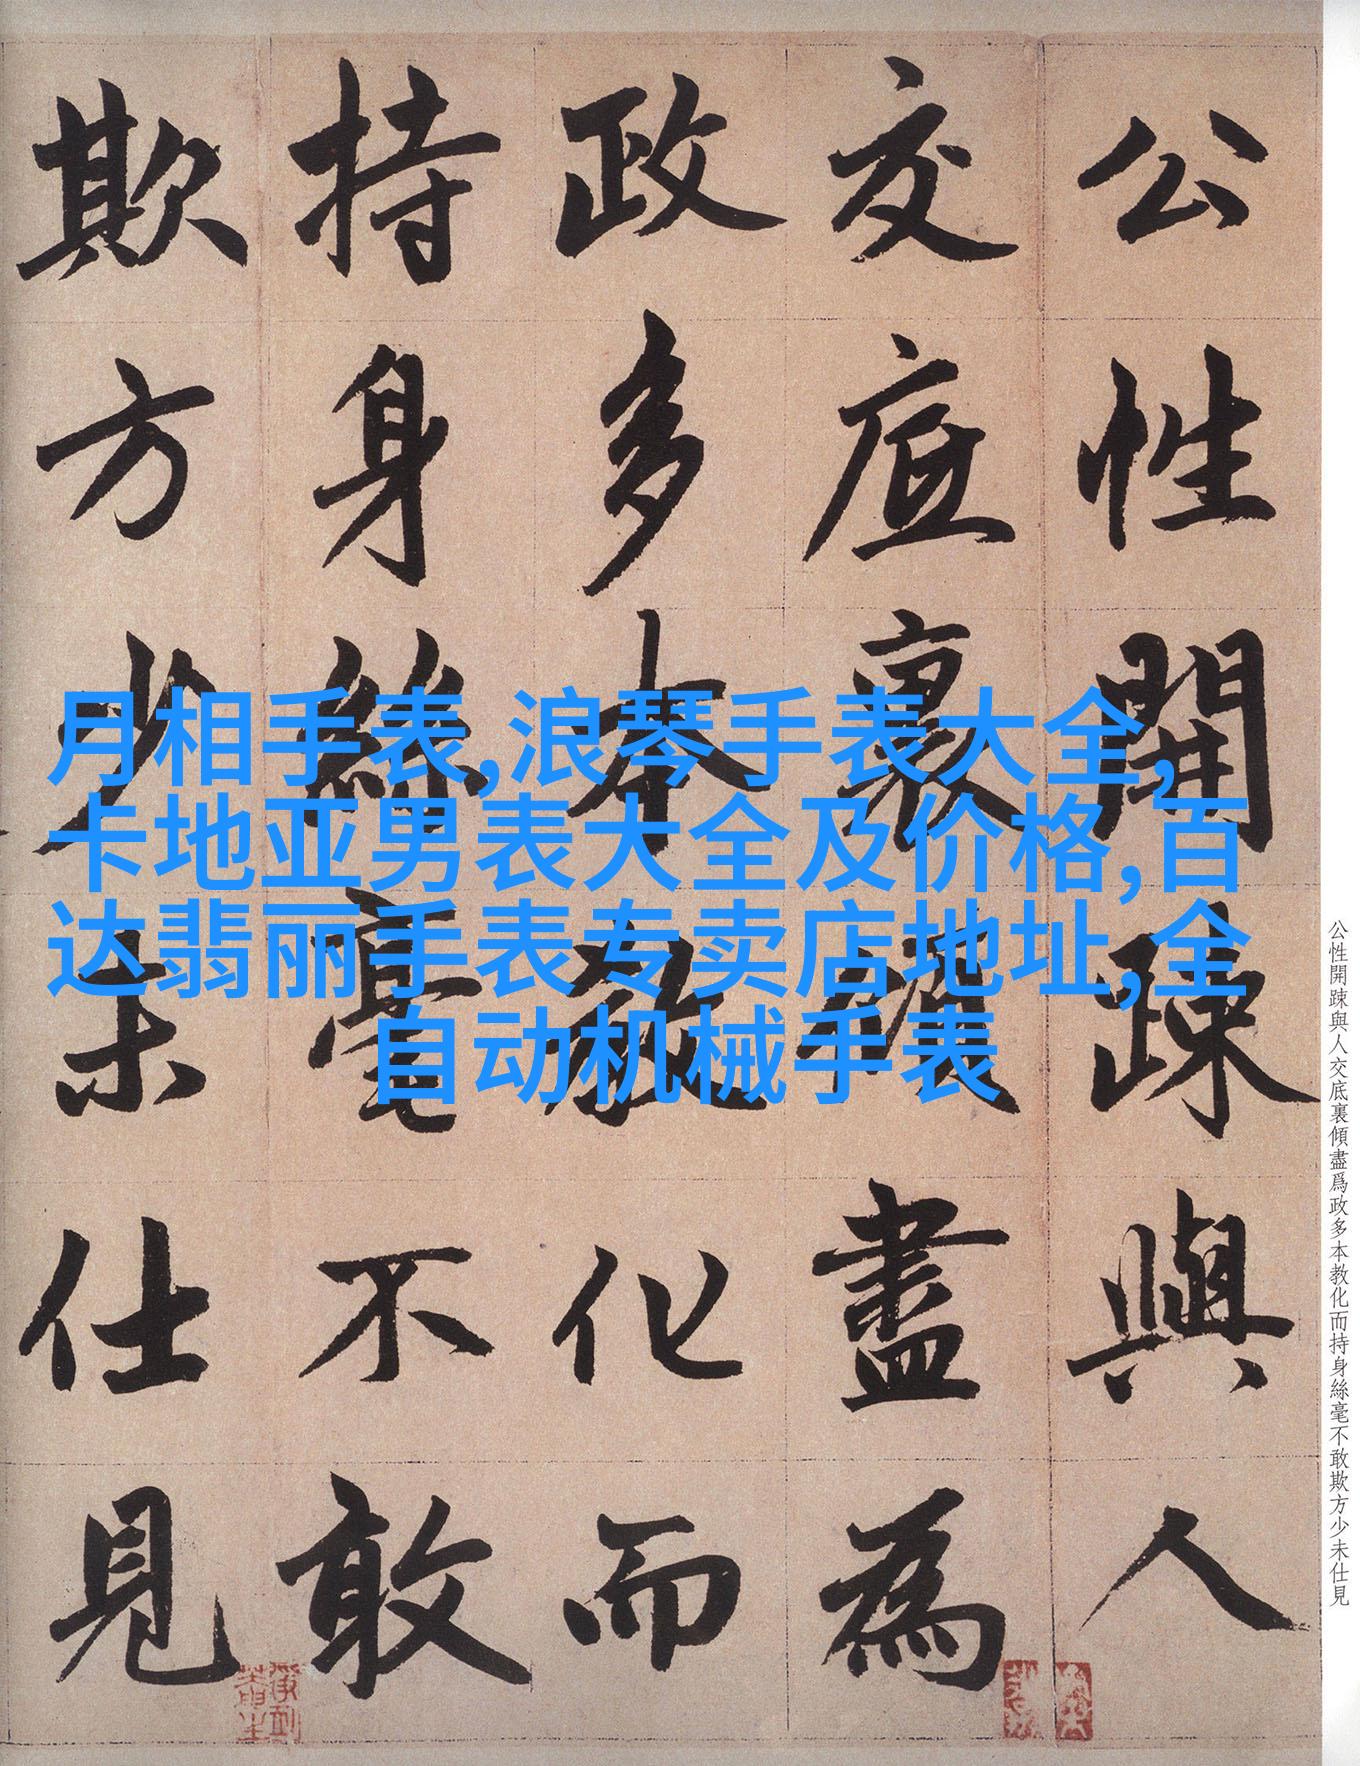 公性開踈與人
交底裏傾盡為
政多本教化而
持身絲毫不敢
欺方少未仕見
月相手表,浪琴手表大全,
卡地亚男表大全及价格,百
达翡丽手表专卖店地址,全
自动机械手表
公性開踈與人交底裏傾盡爲政多本教化而持身絲毫不敢欺方少未仕見